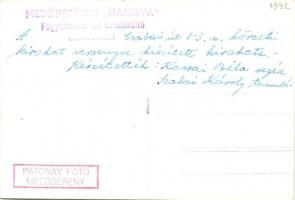 1942
MEZŐBERÉNYI „HANGYA"
Fogyasztási és Értékesítő
A Szabai út 1-3. sz. körzeti
kirakat versenyre készített kirakata.-
Készítették: Kassai Béla segéd
Szabai Károly tanuló
PATONAY FOTO
MEZŐBERÉNY